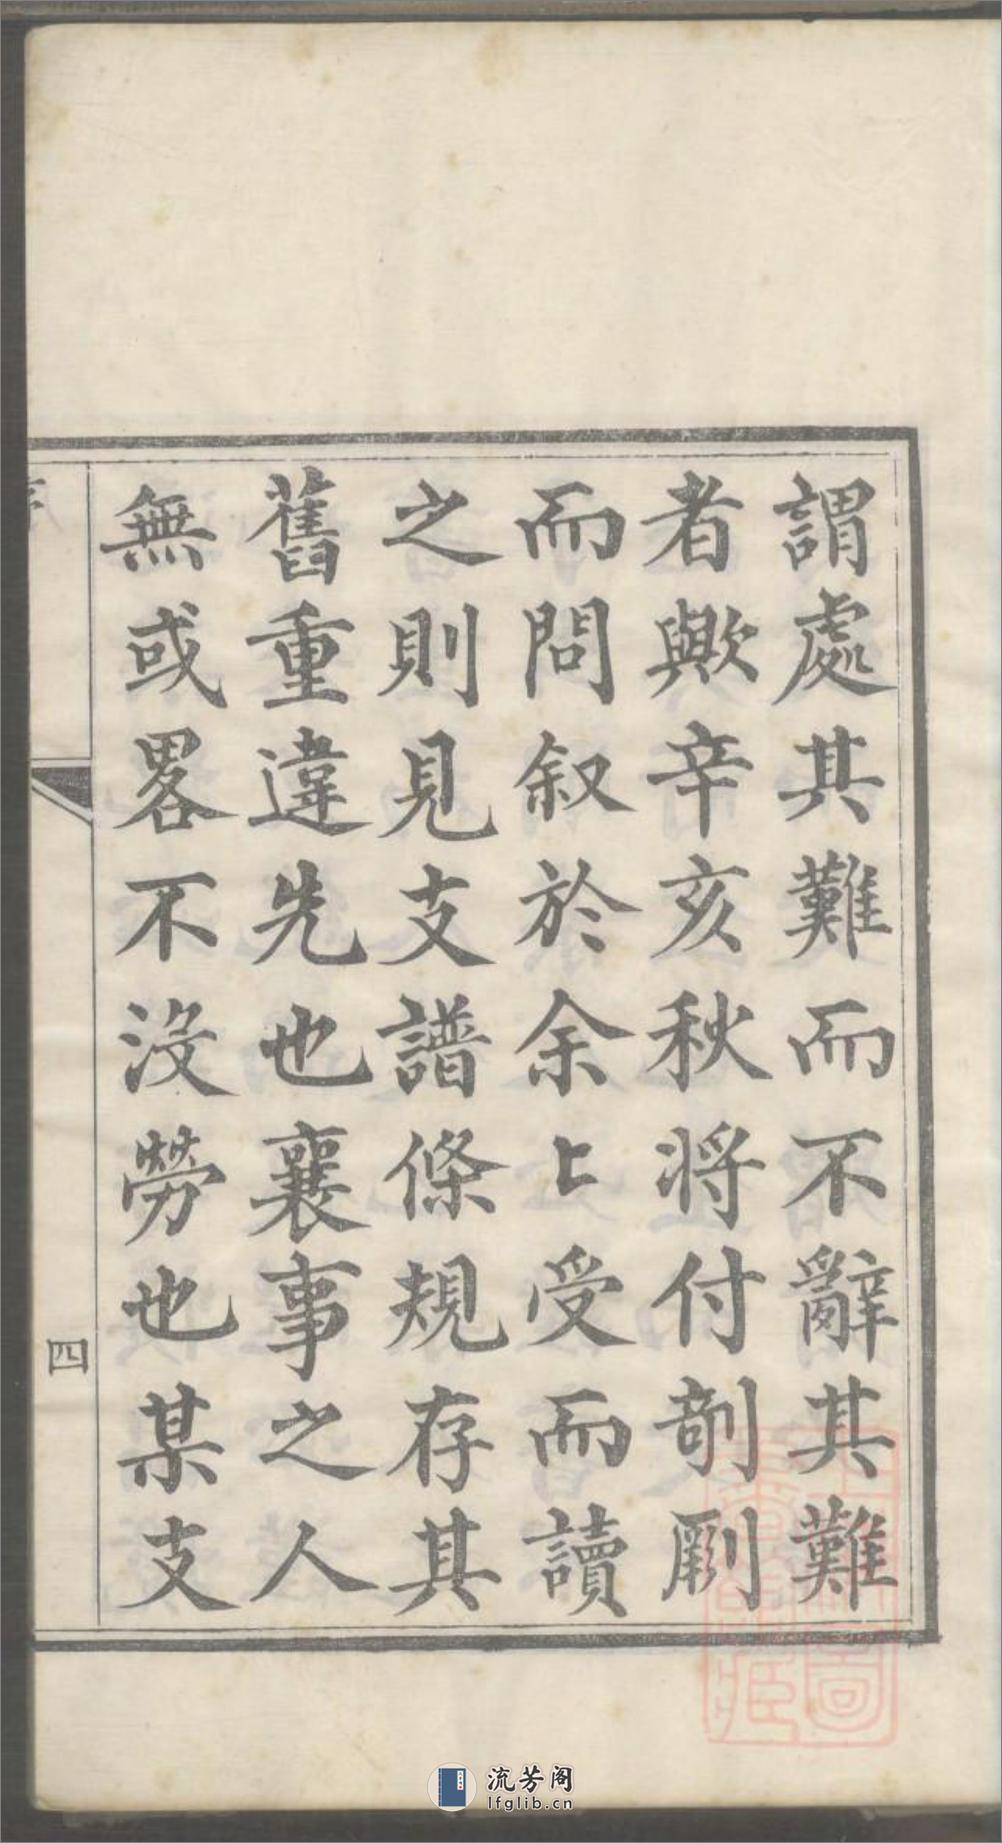 謂處其難而不辭其難
者歟辛亥秋將付剞劂
而問叙於余余受而讀
之則見支譜條規存其
舊重違先也襄事之人
無或畧不沒勞也某支
四
流芳阁
lfglib.cn